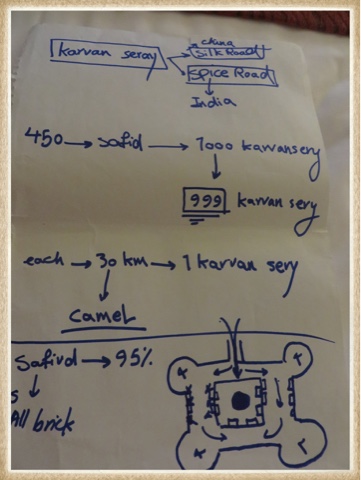 china
karvan seray → Silk Road
Spice Road
India
450 → safid → 1000 karvansery
999 karvan sery
each → 30 km → 1 karvan sery
camel
Safivd → 95%
s
All brick